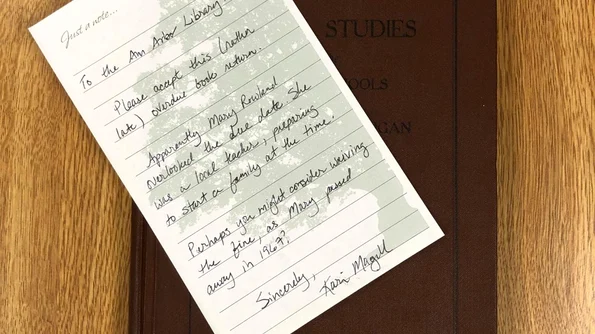 Just a note...
To the Ann Arbor Library:
Please accept this (rather
late) overdue book return.
Apparently Mary Rowland
overlooked the due date. She
was a local teacher, preparing
to start a family at the time.
Perhaps you might consider waiving
the fine, as Mary passed
away in 1969?
Sincerely,
Kari Magill
STUDIES
OOLS
GAN